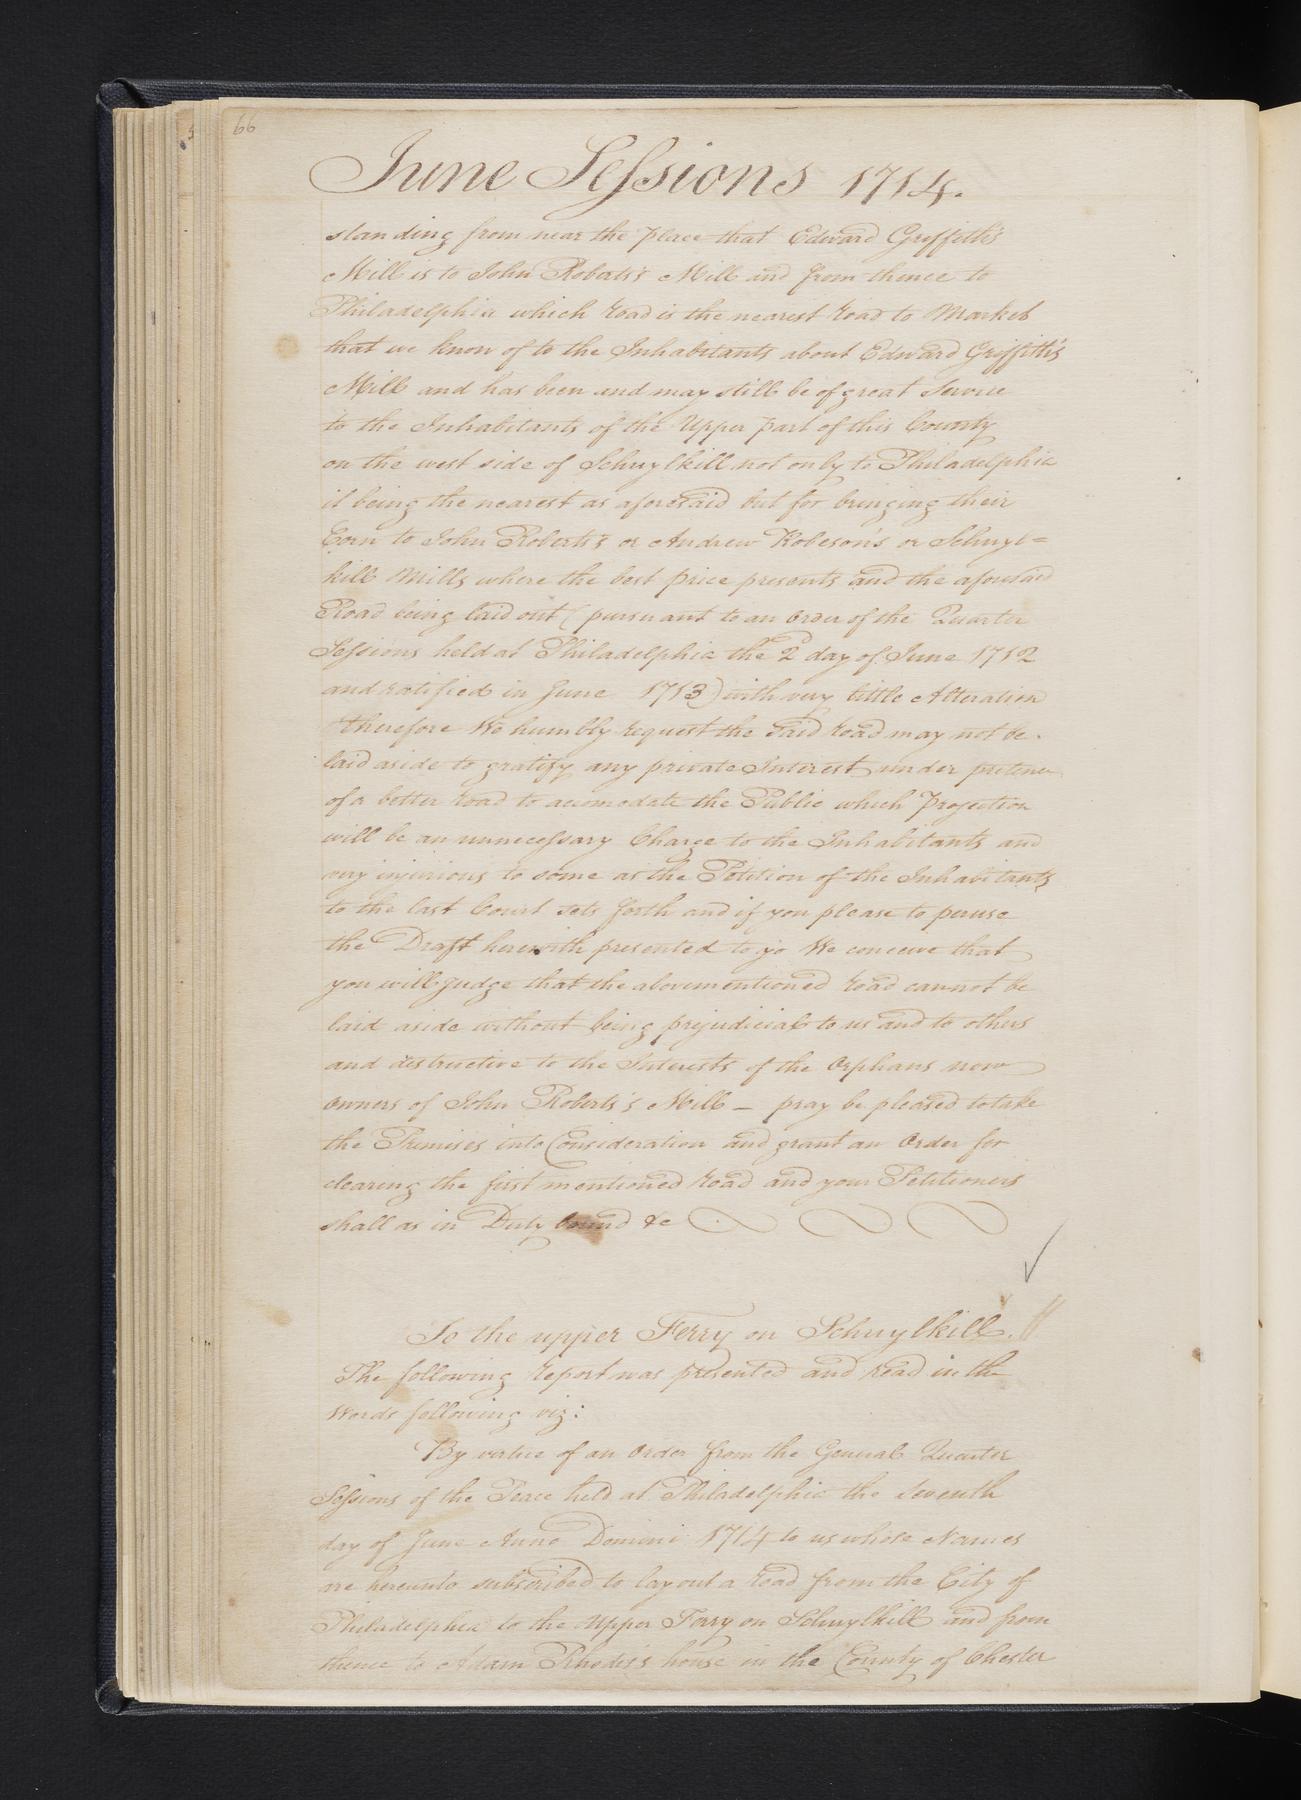 66
June Sessions 1714.
standing from near the place that Edward Griffith's
Mill is to John Roberts's Mill and from thence to
Philadelphia which road is the nearest road to Market
that we know of to the Inhabitants about Edward Griffith's
Mill and has been and may still be of great Service
to the Inhabitants of the Upper part of this County
on the west side of Schuylkill not only to Philadelphia
it being the nearest as aforesaid but for bringing their
Corn to John Roberts's or Andrew Robeson's or Schuyl=
kill Mills where the best price presents and the aforesaid
Road being laid out (pursuant to an order of the Quarter
Sessions held at Philadelphia the 2d day of June 1712
and ratified in June 1713) with very little Alteration
therefore We humbly request the said road may not be
laid aside to gratify any private Interest under pretence
of a better road to accomodate the Public which Projection
will be an unnecessary Charge to the Inhabitants and
very injurious to some as the Petition of the Inhabitants
to the last Court sets forth and if you please to peruse
the Draft herewith presented to yo We conceive that
you will judge that the abovementioned road cannot be
laid aside without being prejudicial to us and to others
and distructive to the Interests of the Orphans now
owners of John Roberts's Mill – pray be pleased to take
the Premises into Consideration and grant an Order for
clearing the first mentioned road and your Petitioners
shall as in Duty bound &c
To the upper Ferry on Schuylkill.
The following report was presented and read in the
Words following viz:
By virtue of an order from the General Quarter
Sessions of the Peace held at Philadelphia the Seventh
day of June Anno Domini 1714 to us whose Names
are hereunto subscribed to lay out a road from the City of
Philadelphia to the Upper Ferry on Schuylkill and from
thence to Adam Rhodes's house in the County of Chester